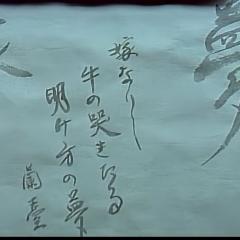 夢
嫁なりし
牛の哭きたる
明け方の夢
蘭臺